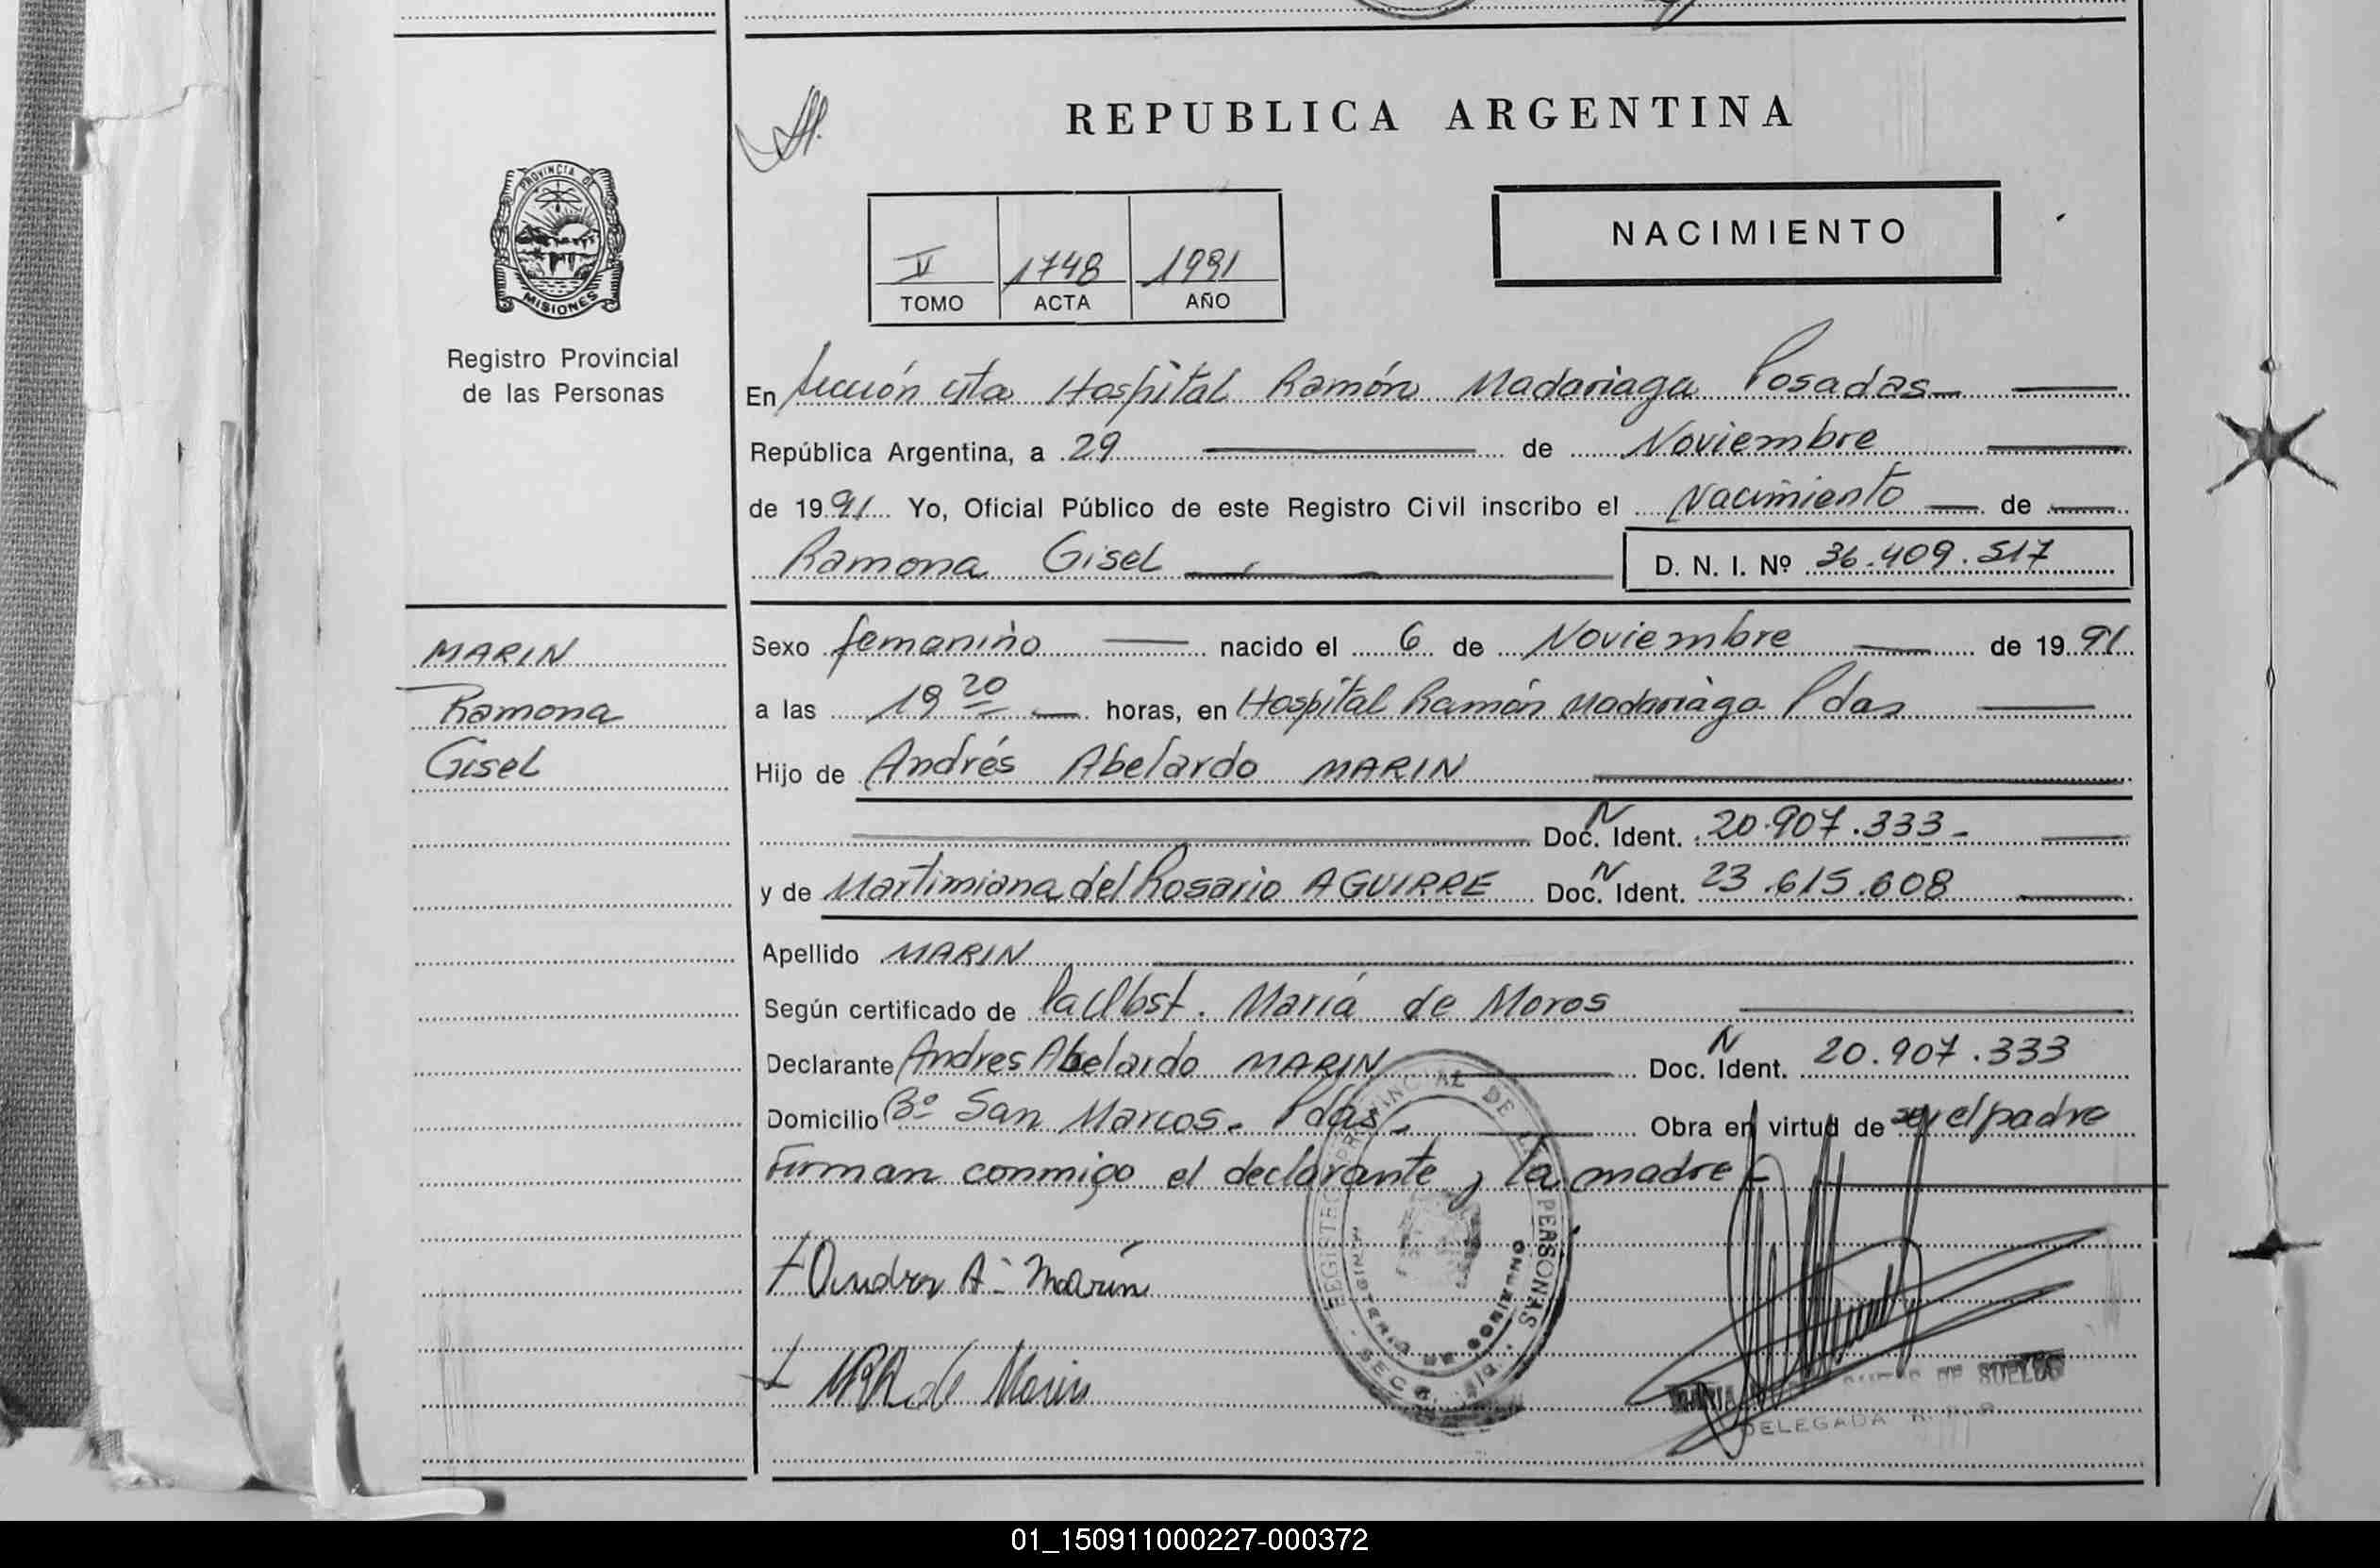 REPUBLICA ARGENTINA
PROVINCIA DE
MISIONES
Registro Provincial
de las Personas
NACIMIENTO
II 1748 1991
TOMO ACTA AÑO
En Sección 4ta Hospital Ramón Madariaga Posadas
República Argentina, a 29 de Noviembre
de 1991 Yo, Oficial Público de este Registro Civil inscribo el Nacimiento de
Ramona Gisel D. N. I. Nº 36.409.517
MARIN
Ramona
Gisel
Sexo femenino nacido el 6 de Noviembre de 1991
a las 19 20 horas, en Hospital Ramón Madariaga Pdas
Hijo de Andrés Abelardo MARIN
Doc. N Ident. 20.907.333
y de Martimiana del Rosario AGUIRRE Doc. N Ident. 23.615.608
Apellido MARIN
Según certificado de María de Moros
Declarante Andres Abelardo MARIN Doc. N Ident. 20.907.333
Domicilio Bº San Marcos. Pdas. Obra en virtud de ser el padre
Firman conmigo el declarante y la madre
Andres A. Marin
de Marin
REGISTRO PROVINCIAL DE LAS PERSONAS
MINISTERIO DE GOBIERNO
MARIA DE SUELOS
DELEGADA
01_150911000227-000372